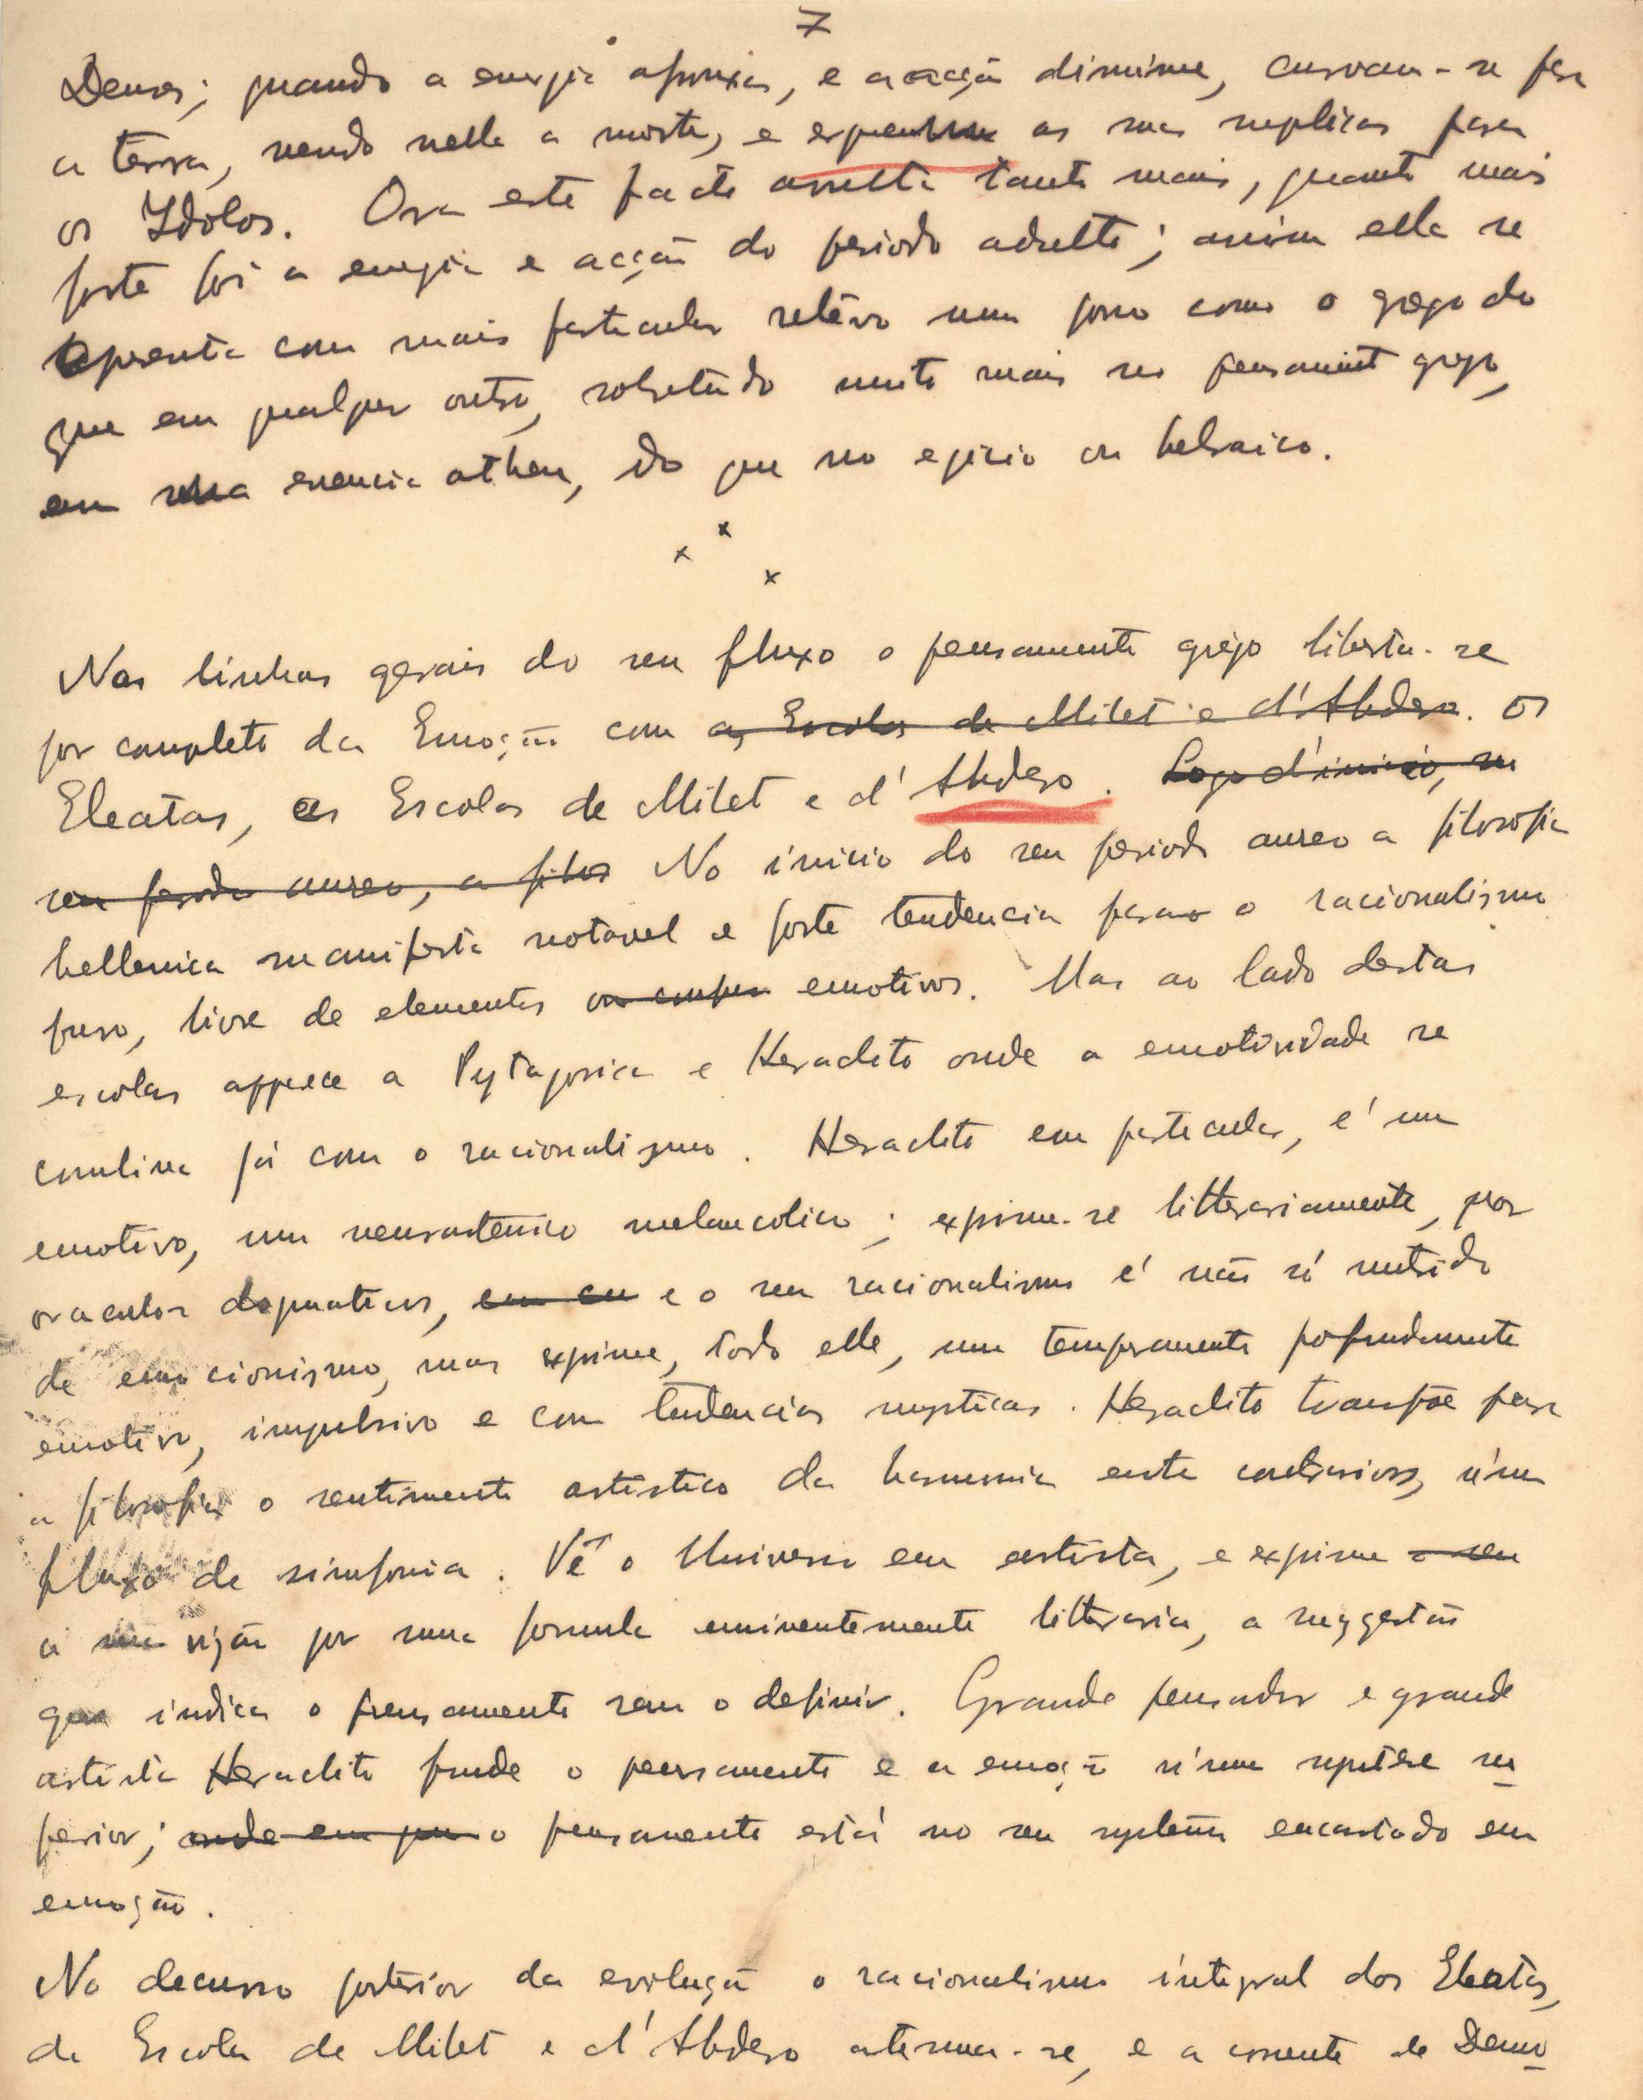 7
Deuses; quando a energia afrouxa, e a acção diminue, curvam-se para
a terra, vendo nella a morte, e erguem as suas suplicas para
os Idolos. Ora este facto avulta tanto mais, quanto mais
forte foi a energia e acção do periodo adulto; assim ella se
apresenta com mais particular relêvo num povo como o grego do
que em qualquer outro, sobretudo muito mais no pensamento grego,
em sua essencia atheu, do que no egicio ou hebraico.
x x x
Nas linhas gerais do seu fluxo o pensamento grêgo liberta-se
por completo da Emoção com as Escolas de Milet e d'Abdera. os
Eleatas, as Escolas de Milet e d'Abdera. Logo d'inicio, no
seu periodo aureo, a filos No inicio do seu periodo aureo a filosofia
hellenica manifesta notavel e forte tendencia para o racionalismo
puro, livre de elementos emotivos. Mas ao lado destas
escolas apparece a Pytagorica e Heraclito onde a emotividade se
combina já com o racionalismo. Heraclito em particular, é um
emotivo, um neurastenico melancolico; exprime-se litterariamente, por
oraculos dogmaticos, e o seu racionalismo é não só nutrido
de emocionismo, mas exprime, todo elle, um temperamento profundamente
emotivo, impulsivo e com tendencias mysticas. Heraclito transpõe para
a filosofia o sentimento artistico da harmonia entre contrarios, n'um
fluxo de simfonia. Vê o Universo em artista, e exprime o seu
a sua visão por uma formula eminentemente litteraria, a suggestão
que indica o pensamento sem o definir. Grande pensador e grande
artista Heraclito funde o pensamento e a emoção n'uma syntese su
perior; onde em que o pensamento está no seu systema encastado em
emoção.
No decurso posterior da evolução o racionalismo integral dos Eleatas,
da Escola de Milet e d'Abdera atenua-se, e a corrente de Demo